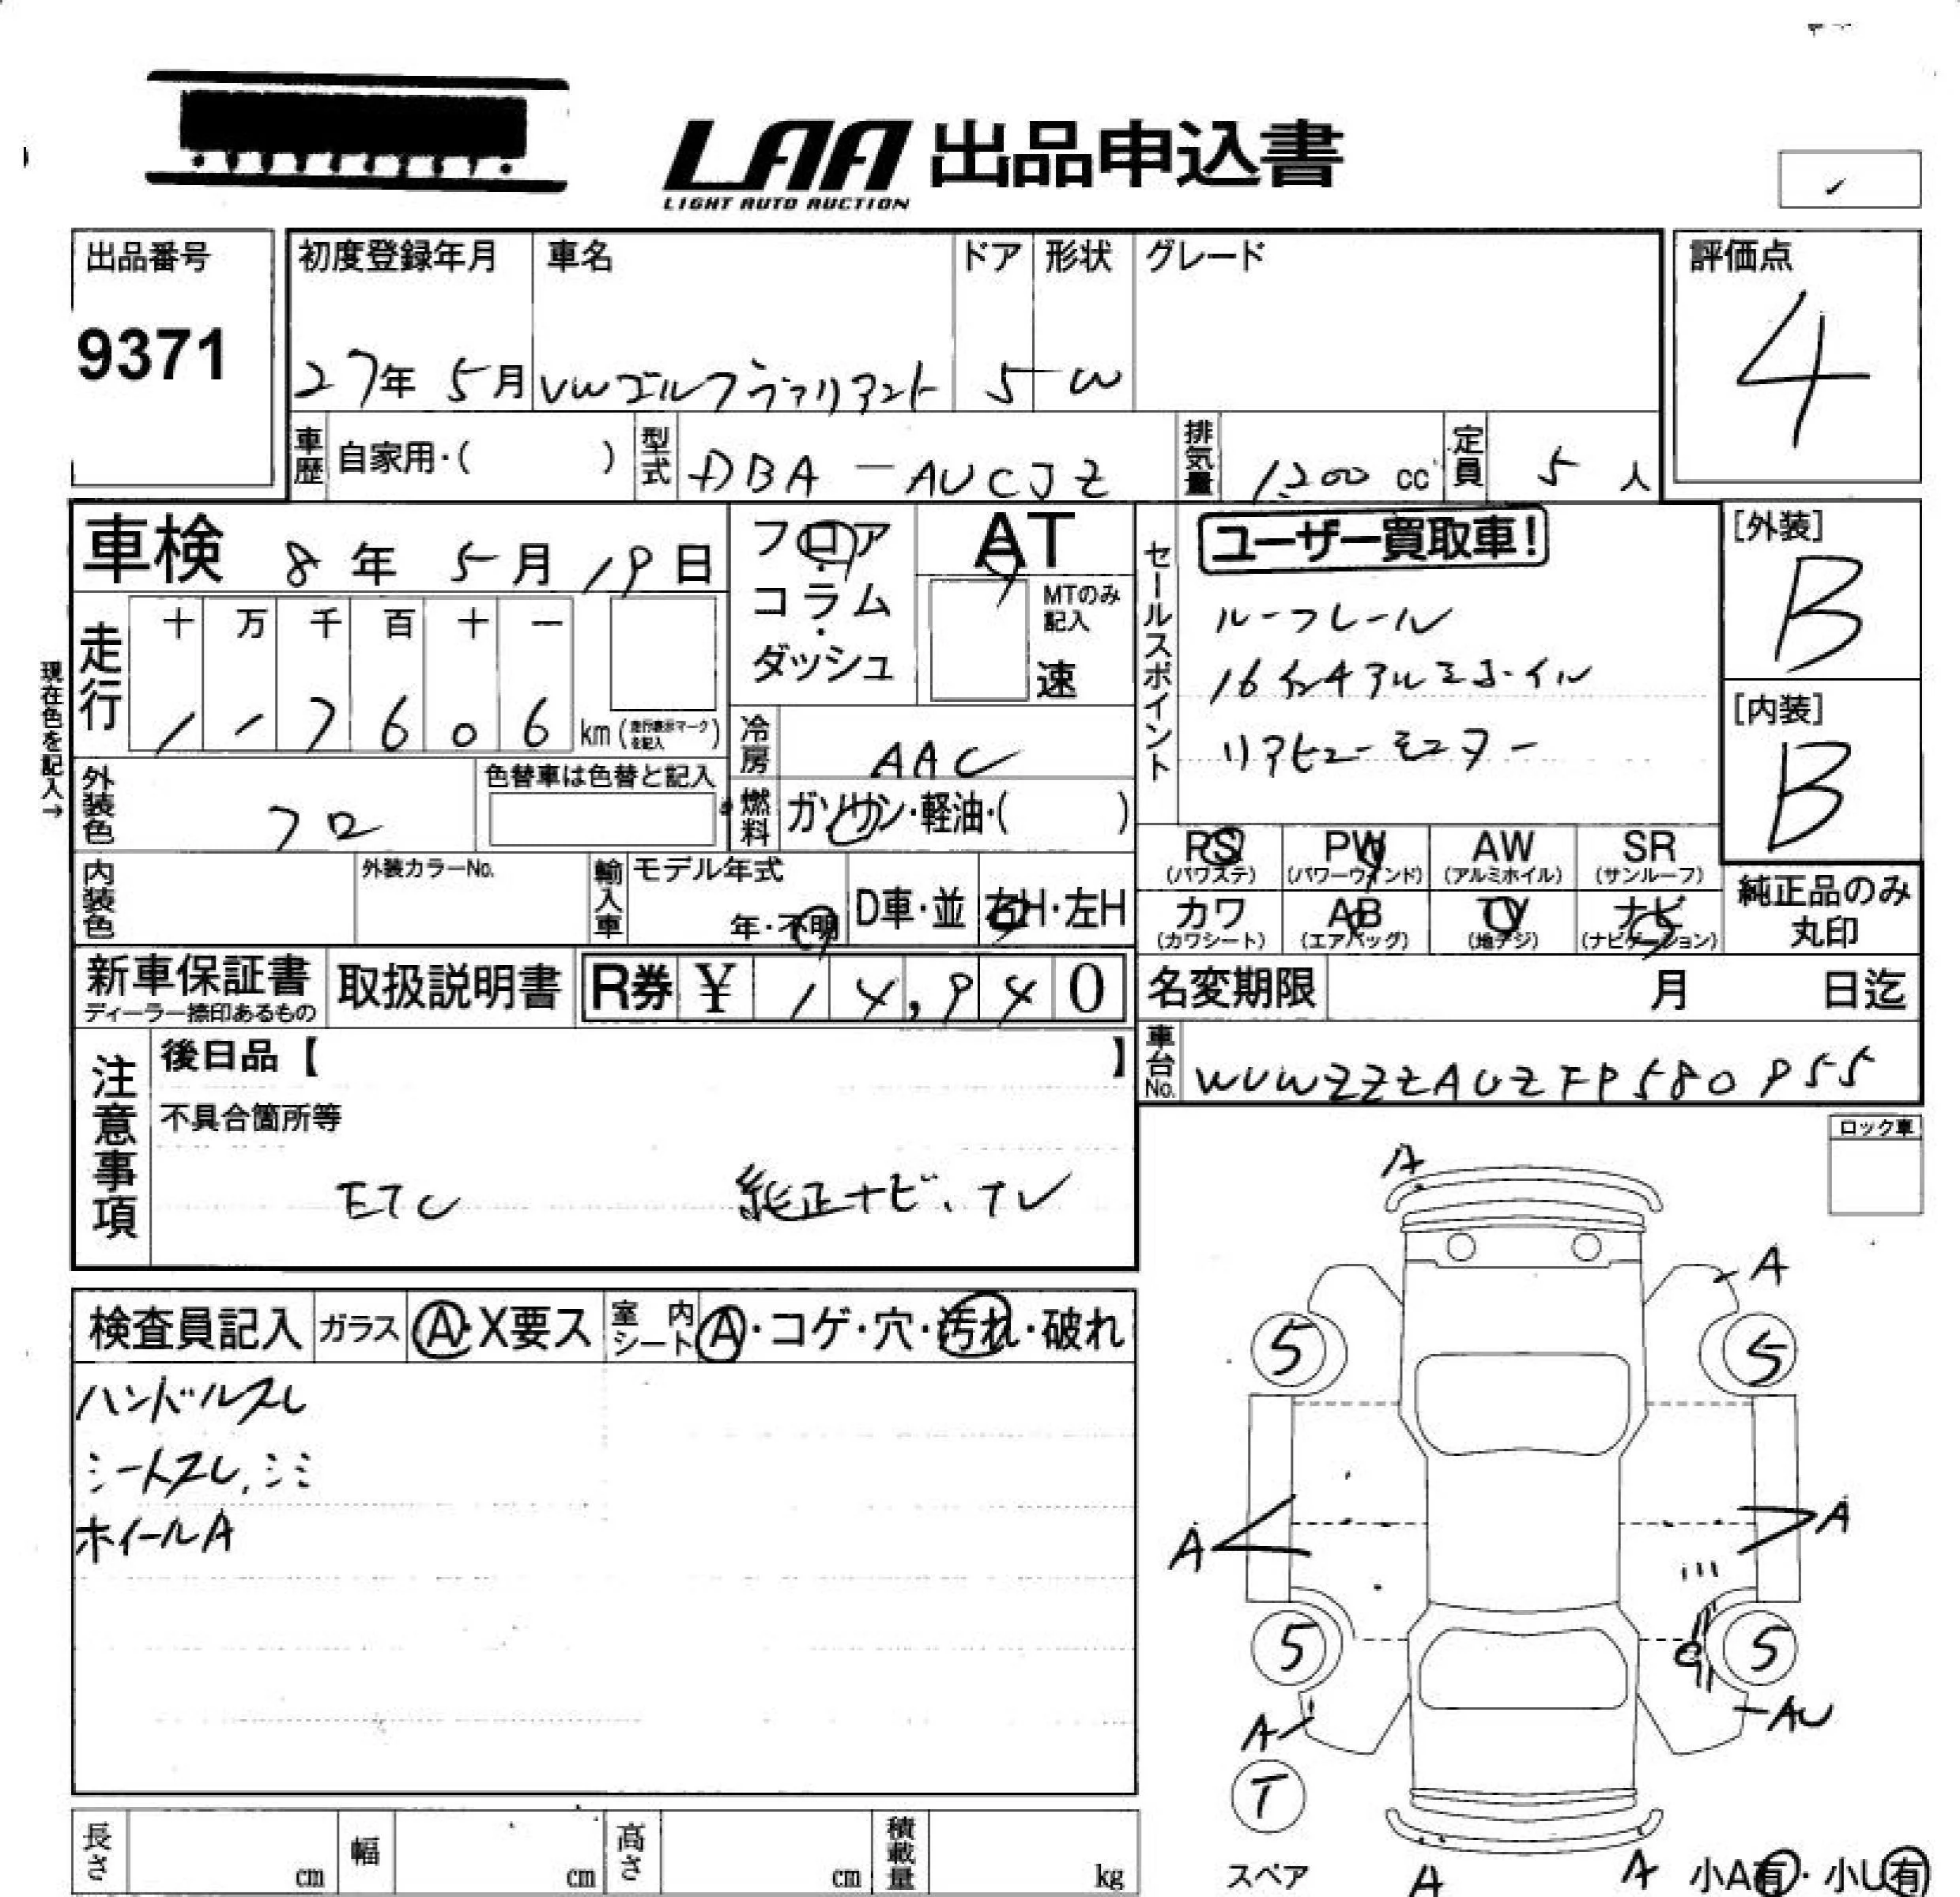 LAA 出品申込書
LIGHT AUTO AUCTION
出品番号
9371
初度登録年月
27年 5月
車名
VWゴルフヴァリアント
ドア
5
形状
W
グレード
評価点
4
車歴 自家用・( )
型式 DBA-AUCJZ
排気量 1,200 cc
定員 5 人
車検 8年 5月 19日
フロア・コラム・ダッシュ
AT
MTのみ記入
速
セールスポイント
ユーザー買取車!
ルーフレール
16インチアルミホイル
リアビューモニター
[外装]
B
[内装]
B
現在色を記入→
走行
十 万 千 百 十 一
1 1 7 6 0 6 km (走行表示マークを記入)
冷房 AAC
外装色 クロ
色替車は色替と記入
燃料 ガソリン・軽油・( )
PS (パワステ)
PW (パワーウインド)
AW (アルミホイル)
SR (サンルーフ)
カワ (カワシート)
AB (エアバッグ)
TV (地デジ)
ナビ (ナビゲーション)
純正品のみ丸印
内装色
外装カラーNo.
輸入車
モデル年式
年・不明
D車・並
右H・左H
新車保証書
ディーラー捺印あるもの
取扱説明書
R券 ¥ 14,940
名変期限 月 日迄
車台No. WVWZZZAUZFP580955
注意事項
後日品【 】
不具合箇所等
ETC 純正ナビ、TV
ロック車
検査員記入
ガラス A・X要ス
室内シート A・コゲ・穴・汚れ・破れ
ハンドルスレ
シートスレ、シミ
ホイールA
A
A
5
5
A
A
5
5
A
AU
T
スペア
A
A
小A有・小U有
長さ cm
幅 cm
高さ cm
積載量 kg